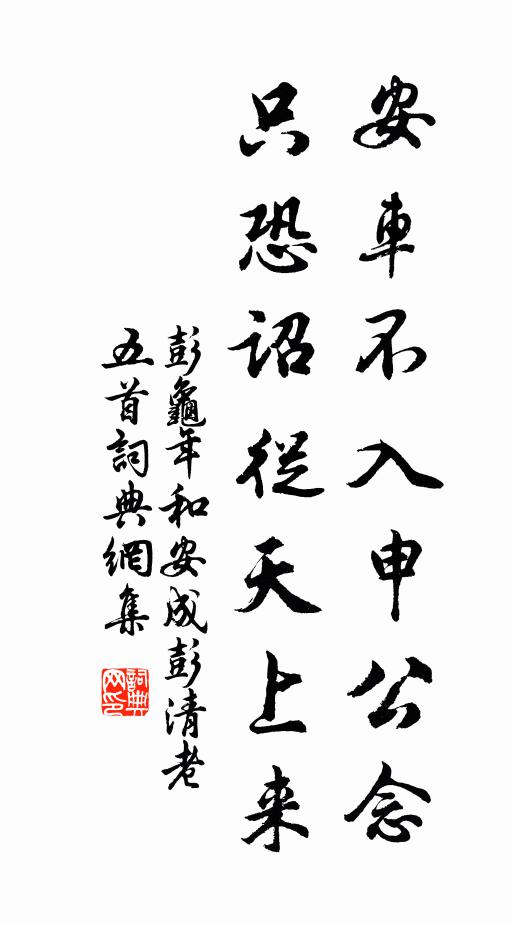 安車不入申公念
只恐詔從天上来
彭龜年和安成彭清老
五首詞典網集
詞典
网印